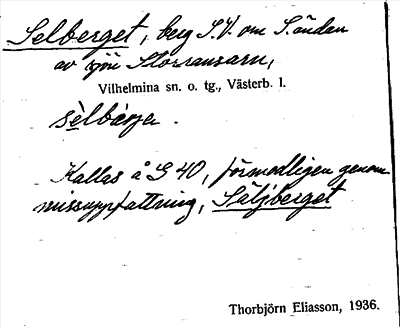 Selberget, berg S.V. om S. ändan
av sjön Storransarn,
Vilhelmina sn. o. tg., Västerb. l.
sèlbárja.
Kallas å G 40, förmodligen genom
missuppfattning, Säljberget
Thorbjörn Eliasson, 1936.